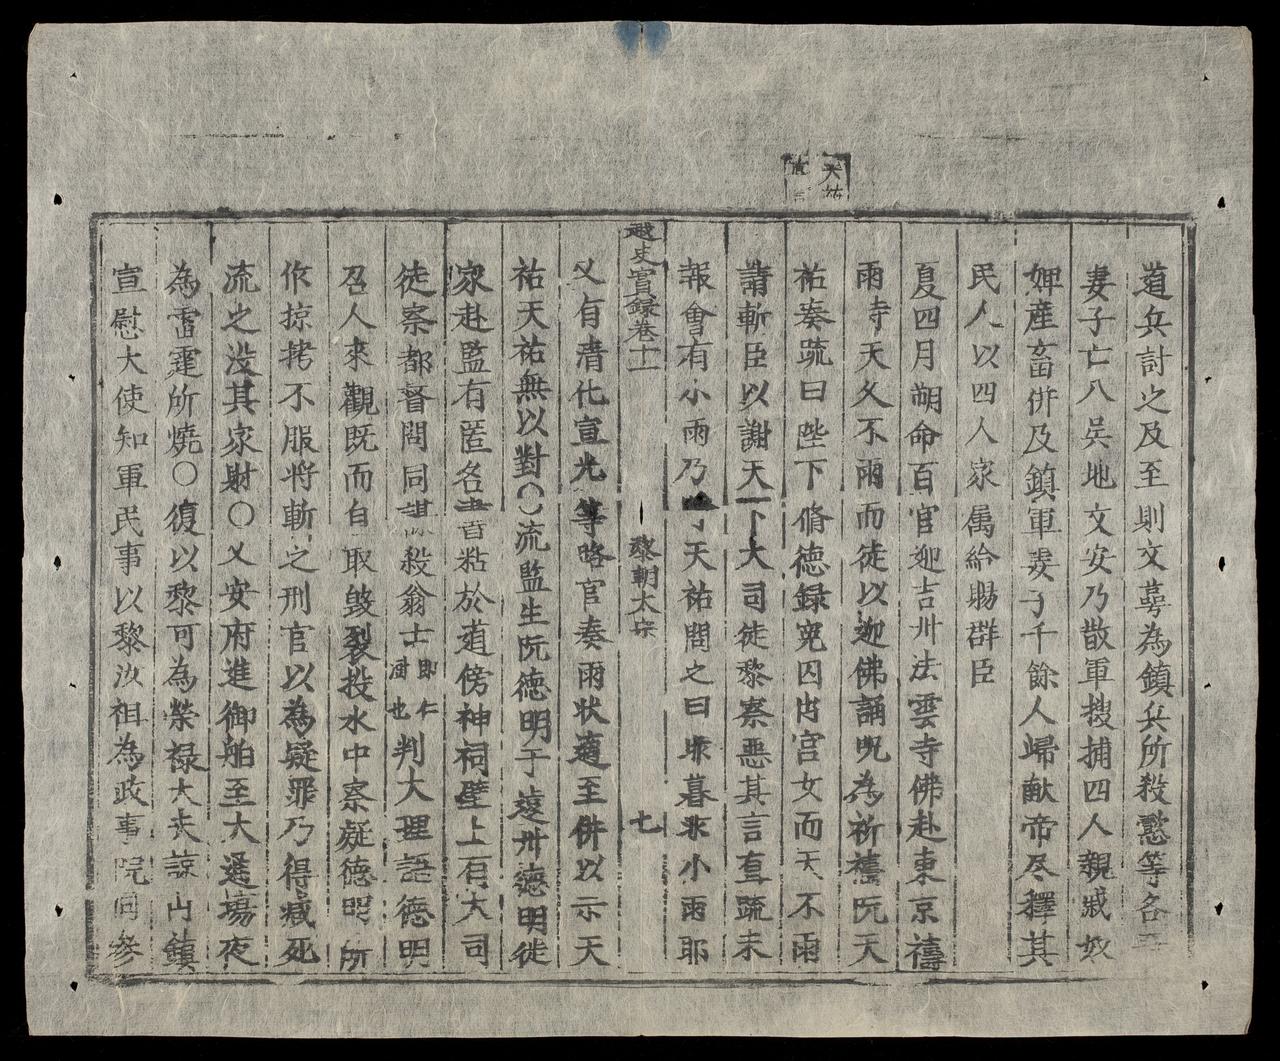 天祐
道兵討之及至則文蕚為鎮兵所殺懃等各
妻子亡入吴地文安乃散軍搜捕四人親戚奴
婢産畜併及鎮軍妻子千餘人歸献帝尽釋其
民人以四人家属給賜群臣
夏四月朔命百官迎吉卅法雲寺佛赴東京禱
雨寺天久不雨而徒以迎佛誦呪為祈禱阮天
祐奏疏曰陛下脩徳録寃囚出宫女而天不雨
請斬臣以謝天下大司徒黎察悪其言直疏未
報會有小雨乃天祐問之曰非暮非小雨耶
越史實録卷十一 黎朝太宗 七
又有清化宣光等略官奏雨状適至併以示天
祐天祐無以對〇流監生阮徳明于遠卅徳明徒
家赴監有匿名書粘於道傍神祠壁上有大司
徒察都督問同謀殺翁士即仁厨也判大理語徳明
召人來觀既而自取毀裂投水中察疑徳明所
作掠拷不服将斬之刑官以為疑罪乃得減死
流之没其家財〇乂安府進御船至大遥場夜
為雷霆所燒〇復以黎可為榮禄大夫諒山鎮
宣慰大使知軍民事以黎汝祖為政事院同參